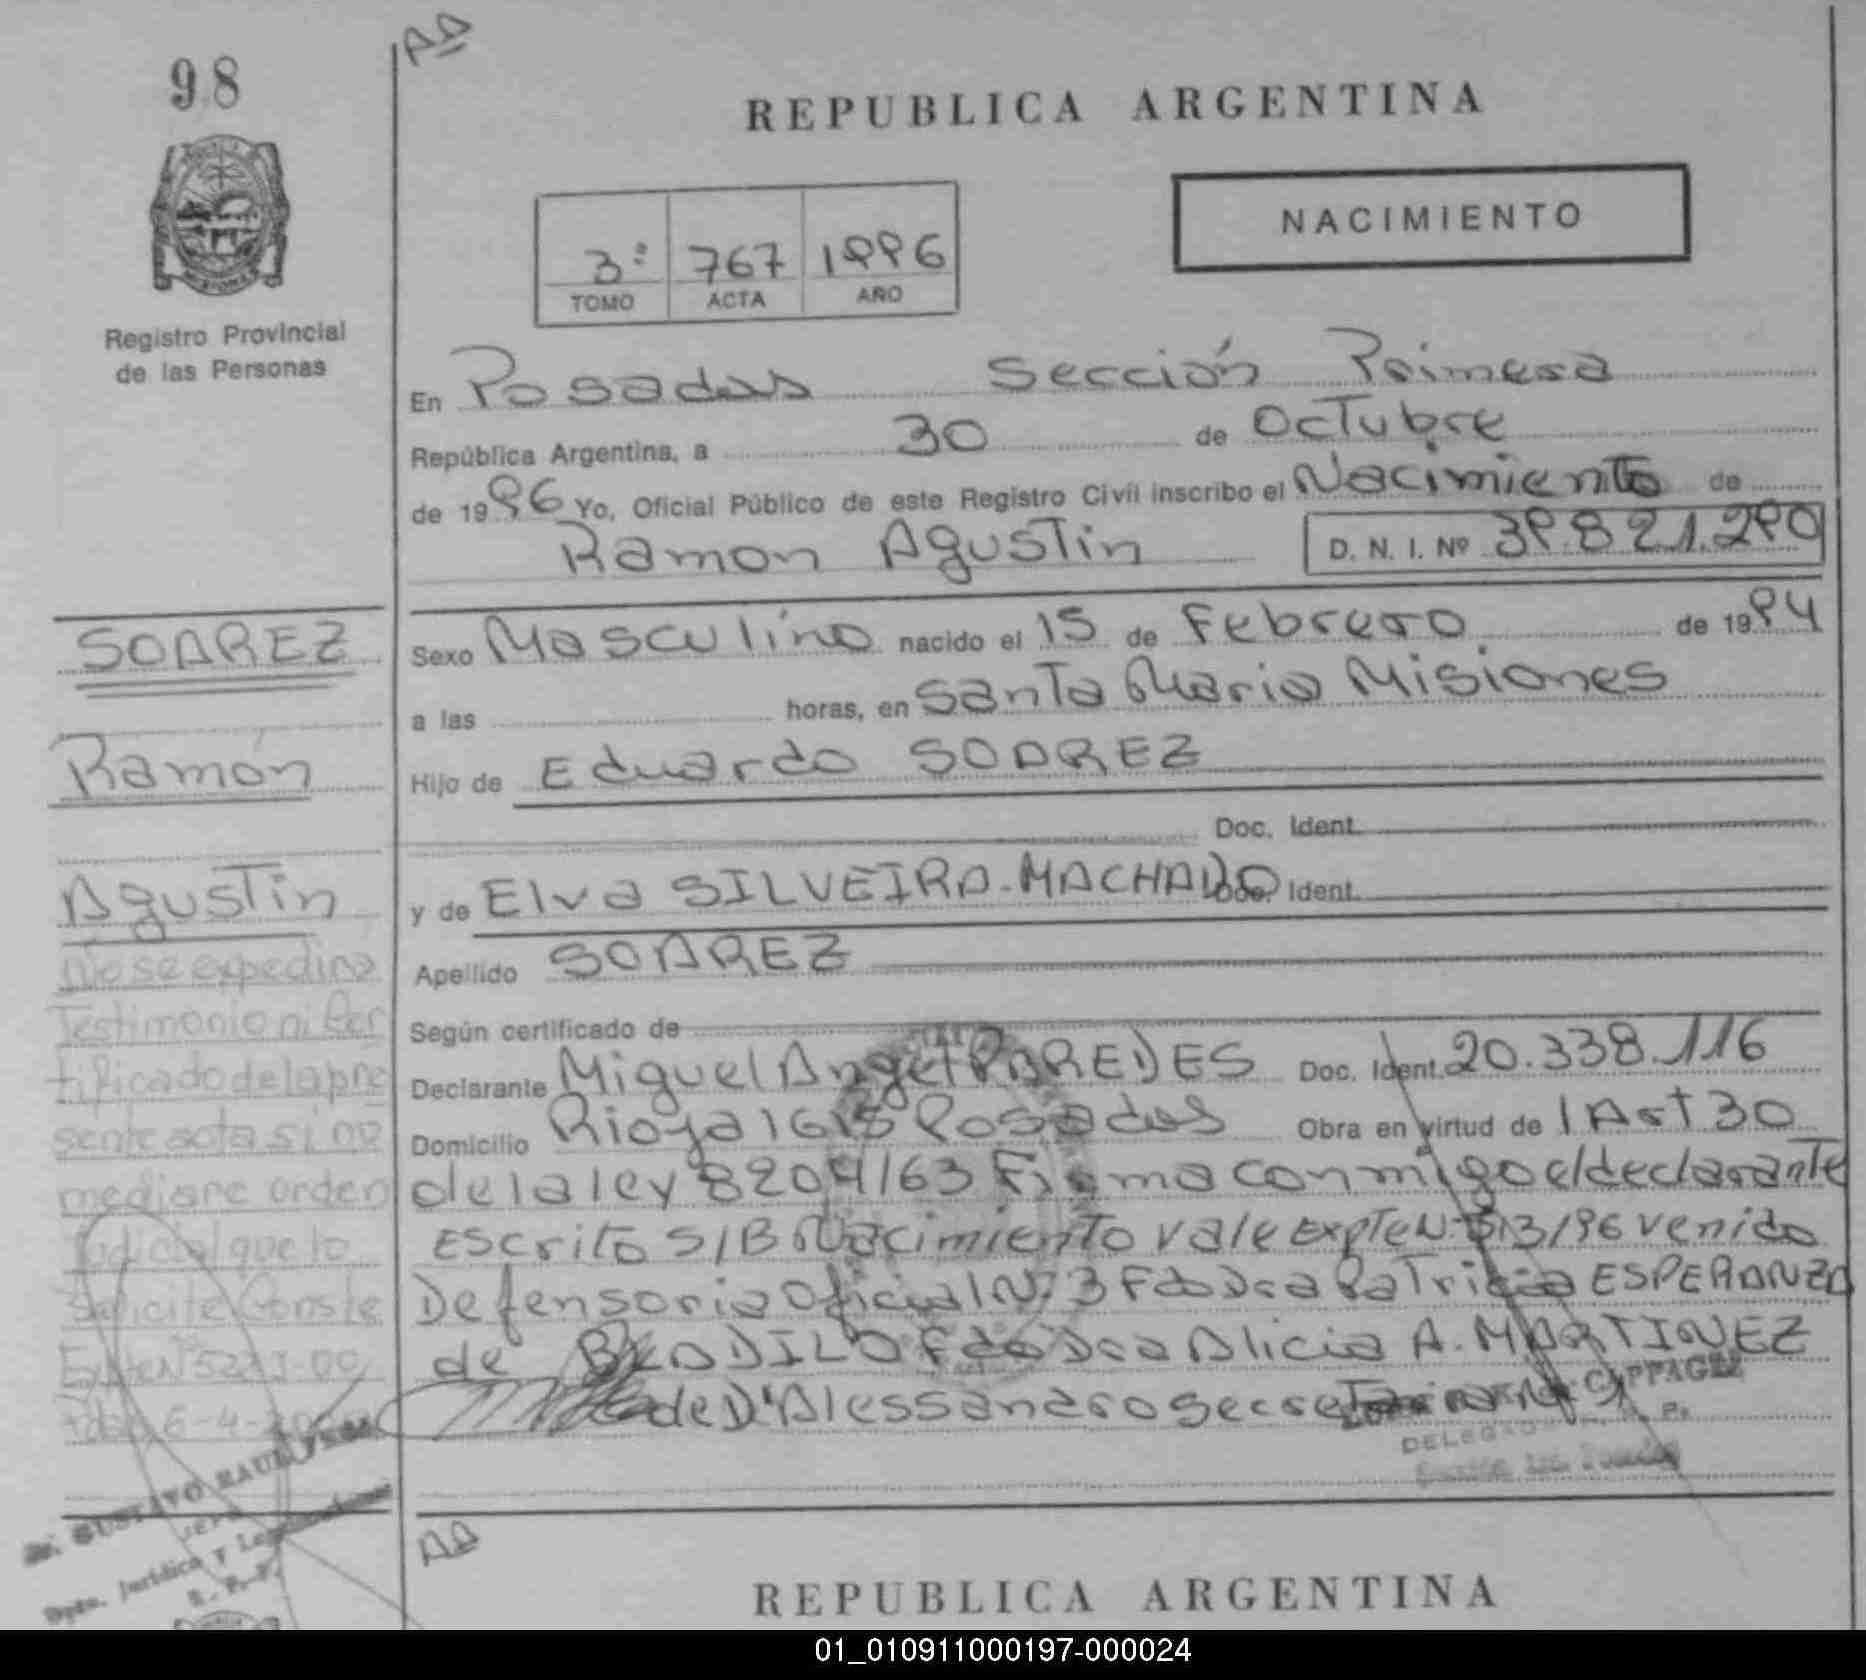 98
AD
REPUBLICA ARGENTINA
NACIMIENTO
3º 767 1996
TOMO ACTA AÑO
Registro Provincial
de las Personas
En Posadas Sección Primera
República Argentina, a 30 de Octubre
de 1996 Yo, Oficial Público de este Registro Civil inscribo el Nacimiento de
Ramon Agustin D. N. I. Nº 39.821.290
SOAREZ
Ramón
Agustin
No se expedira
Testimonio ni Cer
tificado de la pre
sente acta si no
mediare orden
Judicial que lo
Solicite Conste
Expte Nº
6-4-
Dr. GUSTAVO RAUL
JEFE
Dpto. Jurídico y
R. P. P.
Sexo Masculino nacido el 15 de Febrero de 1994
a las horas, en Santa Maria Misiones
Hijo de Eduardo SOAREZ
Doc. Ident.
y de Elva SILVEIRA-MACHADO Doc. Ident.
Apellido SOAREZ
Según certificado de
Declarante Miguel Angel PAREDES Doc. Ident. 20.338.116
Domicilio Rioja 1615 Posadas Obra en virtud de l Art 30
de la ley 8204/63 Firma conmigo el declarante
Escrito S/B Nacimiento vale Expte Nº 513/96 venido
Defensoria Oficial Nº 3 Fdo Dra Patricia ESPERANZA
de Fdo Dra Alicia A. MARTINEZ
de D'Alessandro Secretaria
AD
REPUBLICA ARGENTINA
01_010911000197-000024